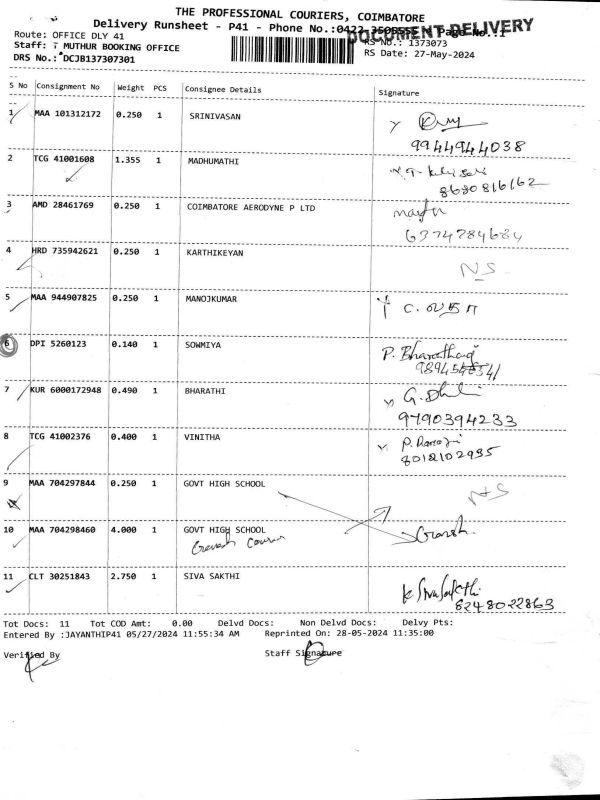 THE PROFESSIONAL COURIERS, COIMBATORE
Delivery Runsheet - P41 - Phone No.:0422 Page No.:1
DOCUMENT DELIVERY
Route: OFFICE DLY 41
RS No.: 1373073
Staff: T MUTHUR BOOKING OFFICE
RS Date: 27-May-2024
DRS No.: DCJB137307301
S No Consignment No Weight PCS Consignee Details Signature
1 MAA 101312172 0.250 1 SRINIVASAN
9944944038
2 TCG 41001608 1.355 1 MADHUMATHI
8680816162
3 AMD 28461769 0.250 1 COIMBATORE AERODYNE P LTD
6374784684
4 HRD 735942621 0.250 1 KARTHIKEYAN NS
5 MAA 944907825 0.250 1 MANOJKUMAR
6 DPI 5260123 0.140 1 SOWMIYA P. Bharathaq
7 KUR 6000172948 0.490 1 BHARATHI
9790394233
8 TCG 41002376 0.400 1 VINITHA
8012102935
9 MAA 704297844 0.250 1 GOVT HIGH SCHOOL NS
10 MAA 704298460 4.000 1 GOVT HIGH SCHOOL
11 CLT 30251843 2.750 1 SIVA SAKTHI K Siva Sakthi
8248022863
Tot Docs: 11 Tot COD Amt: 0.00 Delvd Docs: Non Delvd Docs: Delvy Pts:
Entered By :JAYANTHIP41 05/27/2024 11:55:34 AM Reprinted On: 28-05-2024 11:35:00
Verified By Staff Signature